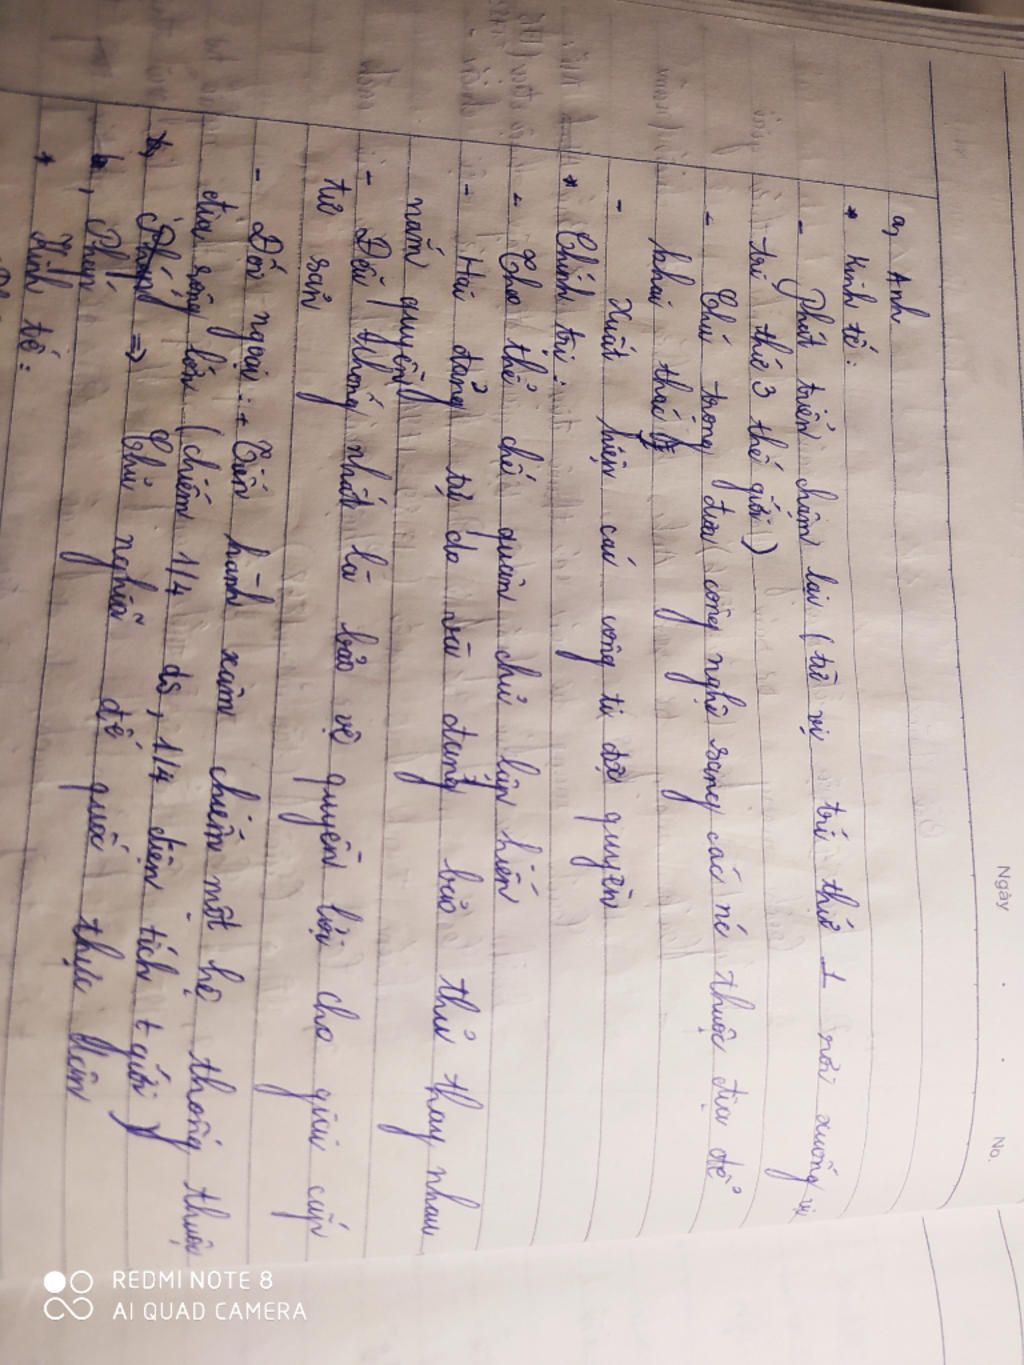 Ngày
No.
a, Anh
* Kinh tế:
- Phát triển chậm lại (từ vị trí thứ 1 rơi xuống vị
trí thứ 3 thế giới)
- Chú trọng đưa công nghệ sang các nc thuộc địa để
khai thác
- Xuất hiện các công ti độc quyền
* Chính trị:
- Thể chế quân chủ lập hiến
- Hai đảng tự do và đảng bảo thủ thay nhau
nắm quyền
- Đối thống nhất là bảo vệ quyền lợi cho giai cấp
tư sản
- Đối ngoại: + Tiến hành xâm chiếm một hệ thống thuộc
địa rộng lớn (chiếm 1/4 ds, 1/4 diện tích t giới)
=> Chủ nghĩa đế quốc thực dân
b, Pháp
* Kinh tế:
REDMI NOTE 8
AI QUAD CAMERA